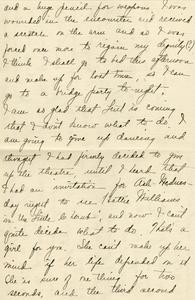 and a huge pencil for weapons. I was
wounded in the encounter and received
a scratch on the arm and so I was
forced once more to regain my dignity(?)
I think I shall go to bed this afternoon
and make up for lost time, so I can
go to a bridge party to-night.
I am so glad that Lent is coming
that I don't know what to do. I
am going to give up dancing and
I had firmly decided to give
up the theatre, until I heard that
I had an invitation for Ash-Wednes-
day night to see Hattie Williams
in and now I can't
quite decide what to do. That's a
girl for you. She can't make up her
mind if her life depended on it
She is sure of one thing for two
seconds, and the third second